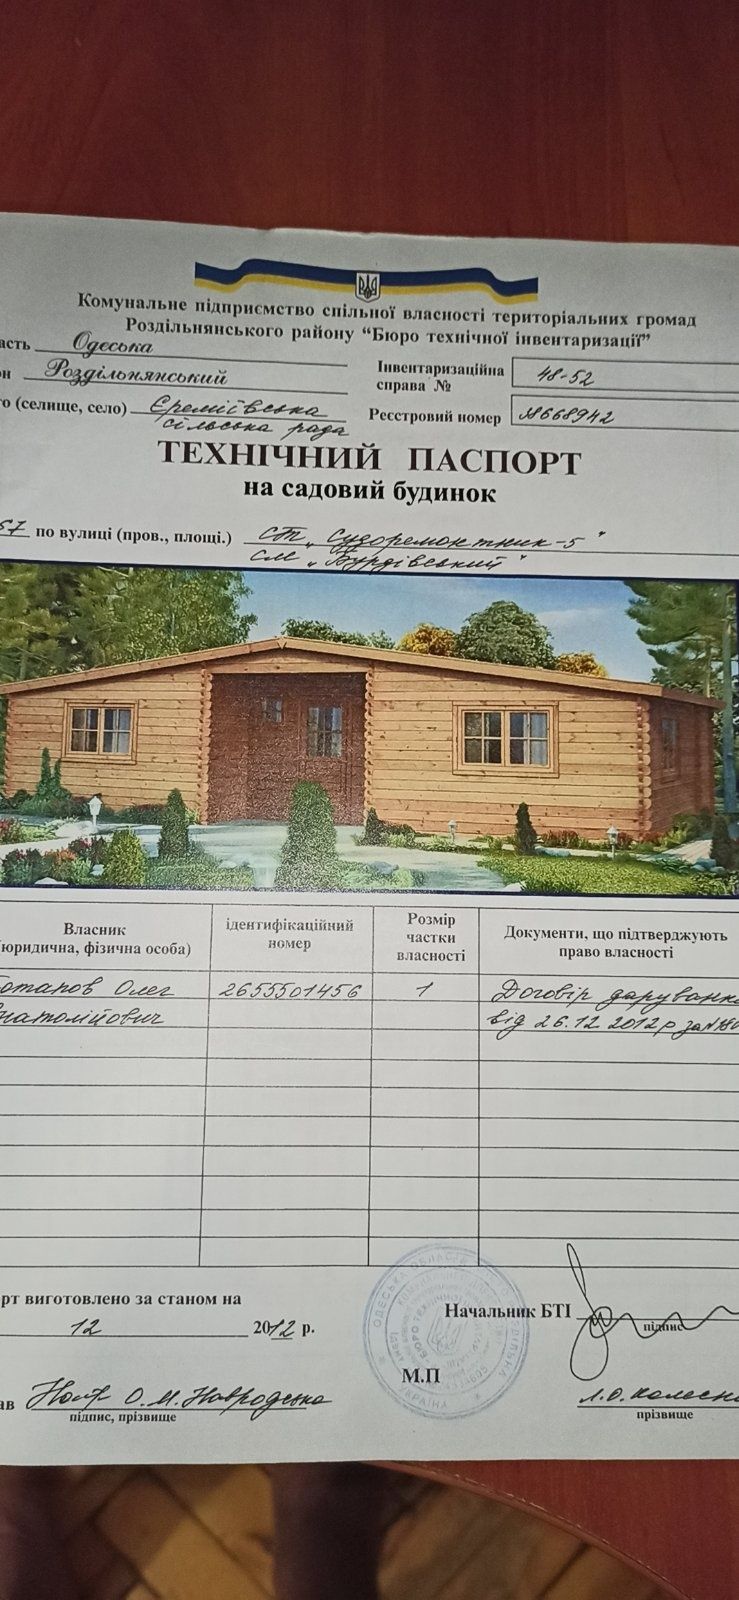 Комунальне підприємство спільної власності територіальних громад
Роздільнянського району “Бюро технічної інвентаризації”
асть Одеська
он Роздільнянський
Інвентаризаційна справа № 48-52
о (селище, село) Єреміївська
сільська рада
Реєстровий номер 38668942
ТЕХНІЧНИЙ ПАСПОРТ
на садовий будинок
57 по вулиці (пров., площі.) СТ „Судоремонтник-5"
см „Бурдівський"
Власник
юридична, фізична особа)
ідентифікаційний
номер
Розмір
частки
власності
Документи, що підтверджують
право власності
отапов Олег 2655501456 1 Договір даруванн
натолійович від 26.12 2012р за №
рт виготовлено за станом на
12 2012 р.
Начальник БТІ
підпис
М.П
ав О.М. Навродська
підпис, прізвище
Л.О. Колесн
прізвище
ОДЕСЬКА ОБЛАСТЬ
УКРАЇНА